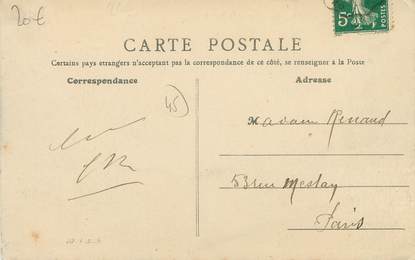 20€
5c
POSTES
CARTE POSTALE
Certains pays étrangers n'acceptant pas la correspondance de ce côté, se renseigner à la Poste
Correspondance
Adresse
45
Madame Renaud
53 rue Meslay
Paris